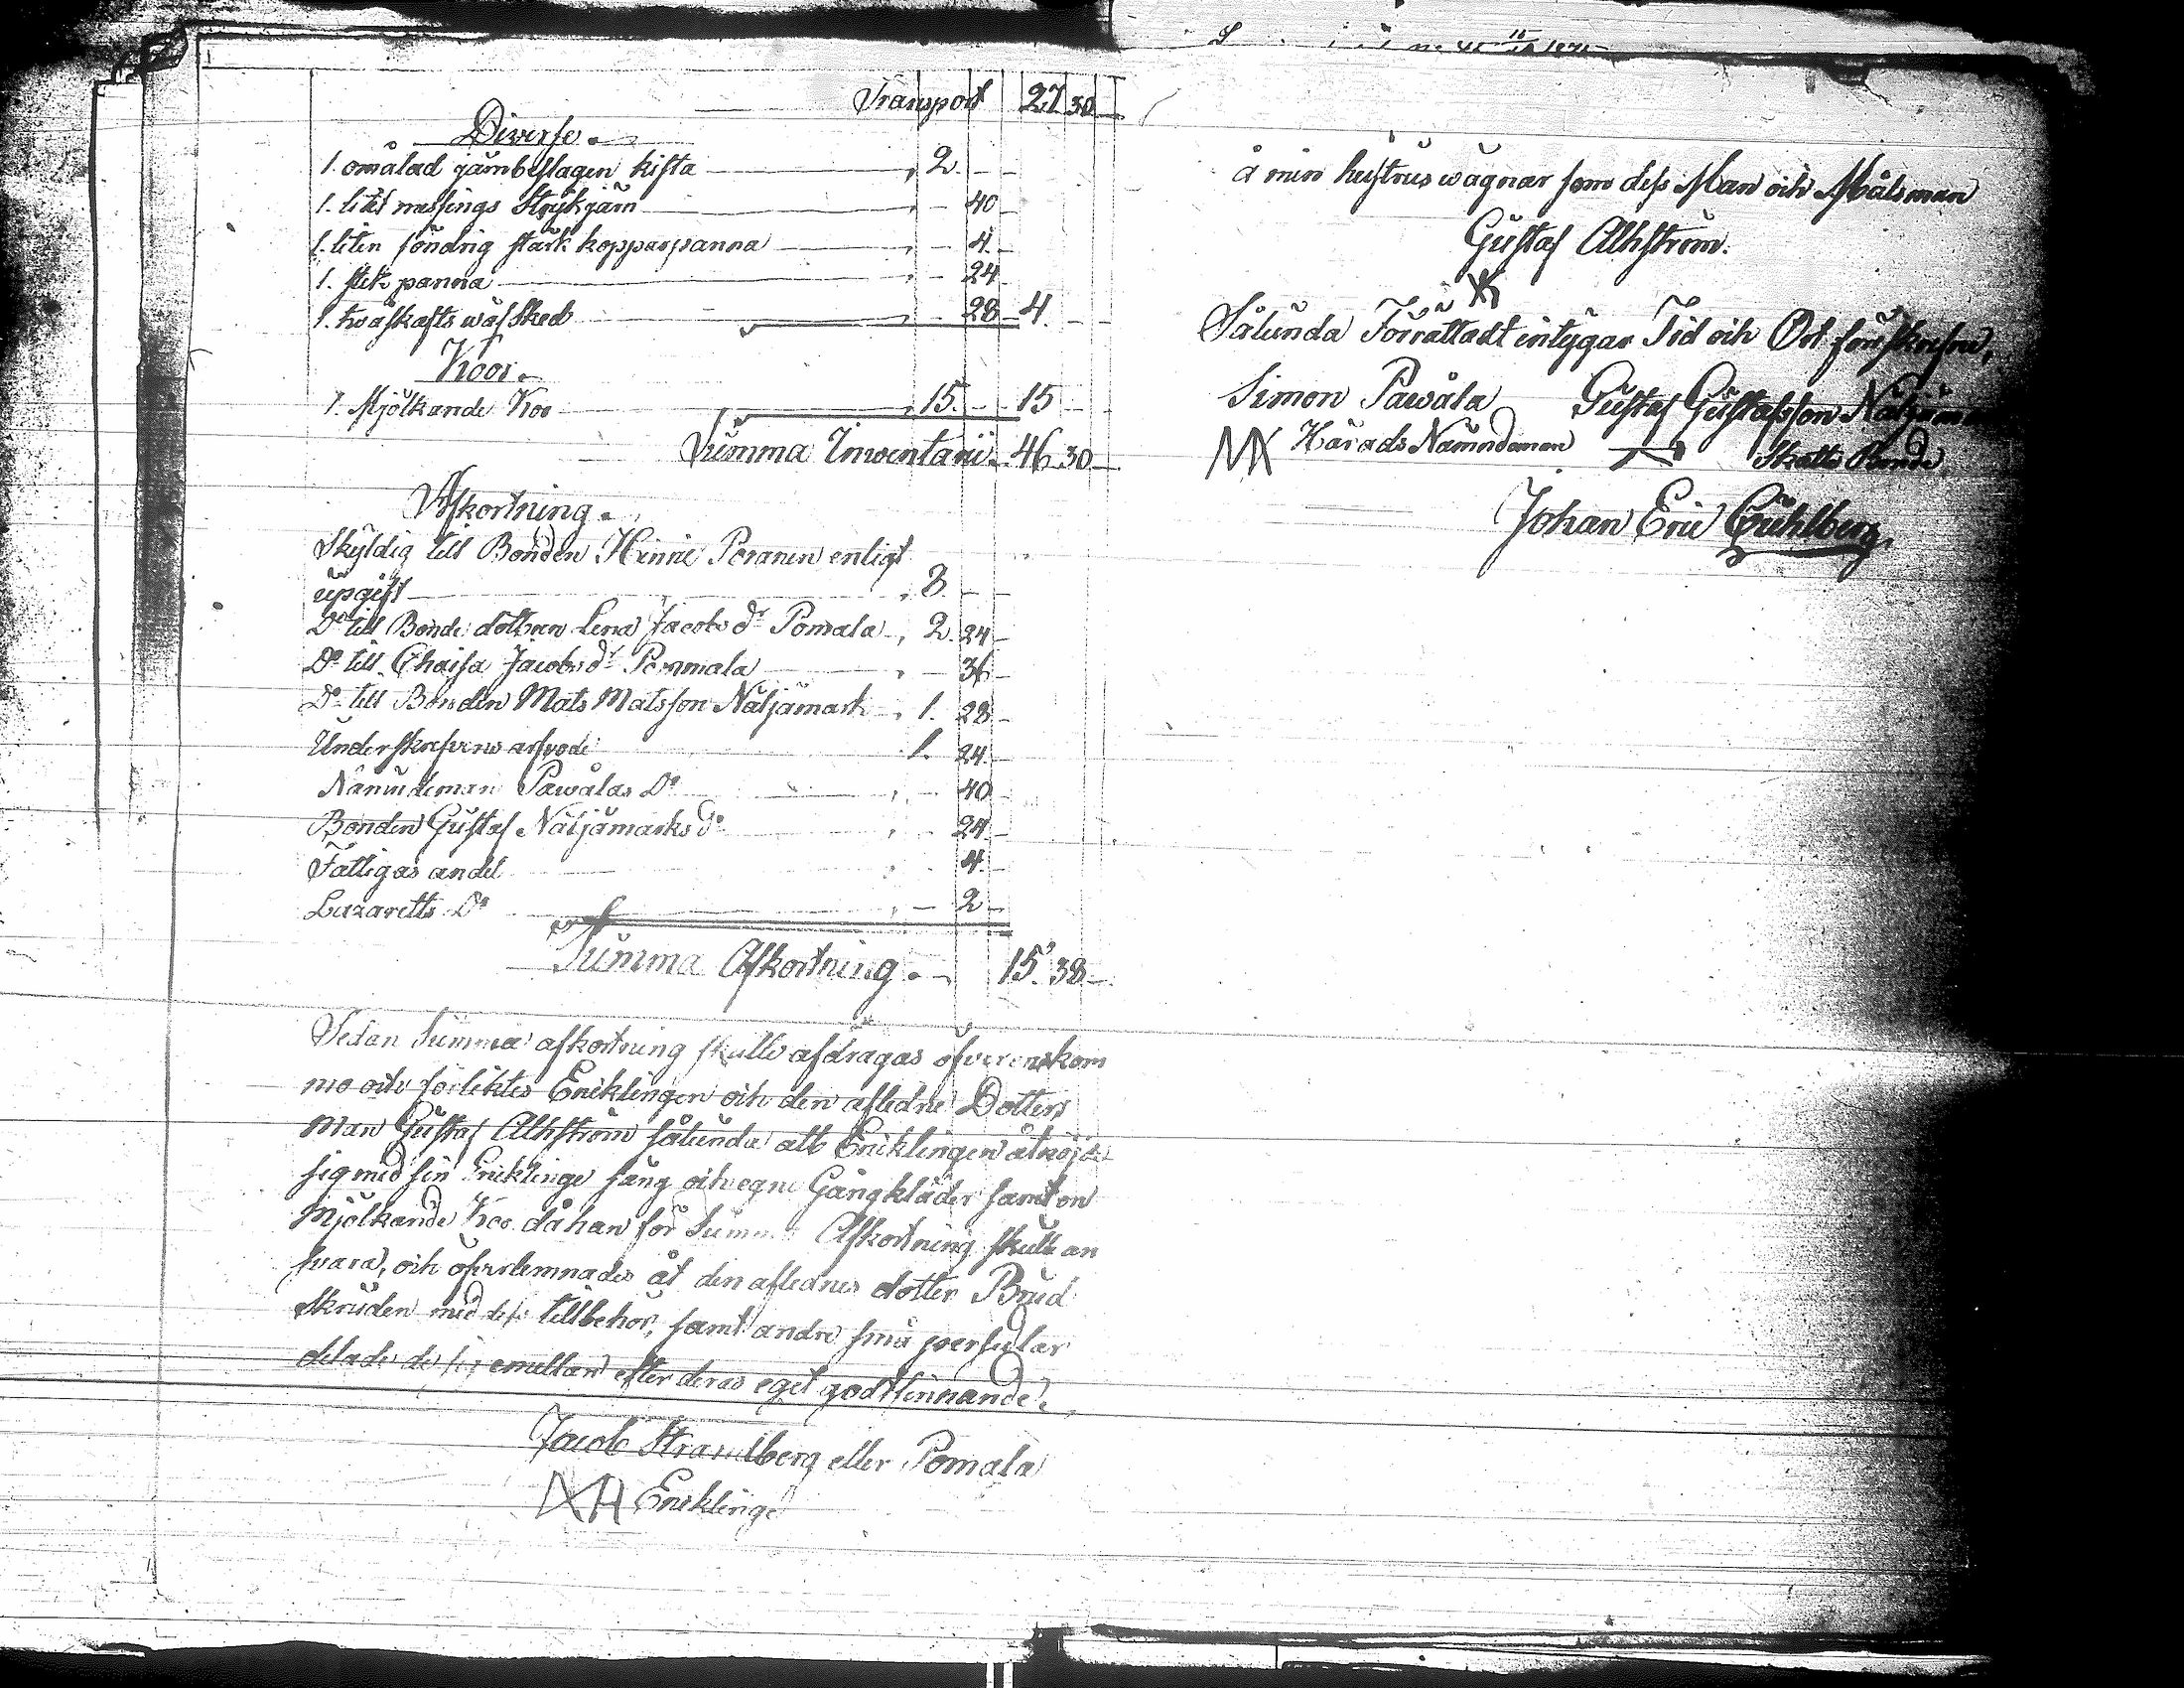 Transport 27 30 —
Diverse.
1. omålad järnbeslagen kista — 2. — —
1. litet messings Strykjärn — 40 —
1. liten söndrig stark kopparpanna — 4. —
1. stek panna — 24
1. twåskafts wäfsked — 28 4. — —
Koor.
1. Mjölkande Koo — 15. — 15 —
Summa Inventarii 46 30 —
Afkortning.
Skyldig till Bonden Hinric Poranen enligt
upgift — 8. — —
Do till Bonde dottren Lena Jacobs dr Pomala — 2. 24 —
Do till Chaisa Jacobs dr Pommala — 36 —
Do till Bonden Mats Matsson Näljämark — 1. 28 —
Underskrefvens arfvode 1. 24. —
Nämndeman Pawålas Do — 40 —
Bonden Gustaf Näljämarks do — 24 —
Fattigas andel 4. —
Lazaretts Do — 2 —
Summa Afkortning. — 15. 38. —
Sedan Summa afkortning skulle afdragas öfverenskom
mo och förliktes Enklingen och den aflednes Dotters
man Gustaf Alhström sålunda att Enklingen åtnöjde
sig med sin Enklinge säng och egne Gångkläder samt en
Mjölkande Koo då han för Summa Afkortning skulle an
svara, och öfverlemnades åt den aflednes dotter Brud
skruden med dess tillbehör, samt andre små persedlar
delade de sig emellan efter deras eget godtfinnande.
Jacob Strandberg eller Pomala
Enklinge
å min hustrus wägnar som dess Man och Målsman
Gustaf Alhström.
Sålunda Förrättadt intygar Tid och Ort förrskrefne,
Simon Pawåla Gustaf Gustafsson Näljämark
Härads Nämndeman Skatte Bonde
Johan Eric Cruhlberg.